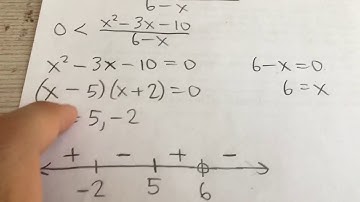 6-x
0 < x² - 3x - 10 / 6-x
x² - 3x - 10 = 0
6-x=0
(x - 5)(x+2) = 0
6 = x
= 5, -2
+ - + -
-2 5 6